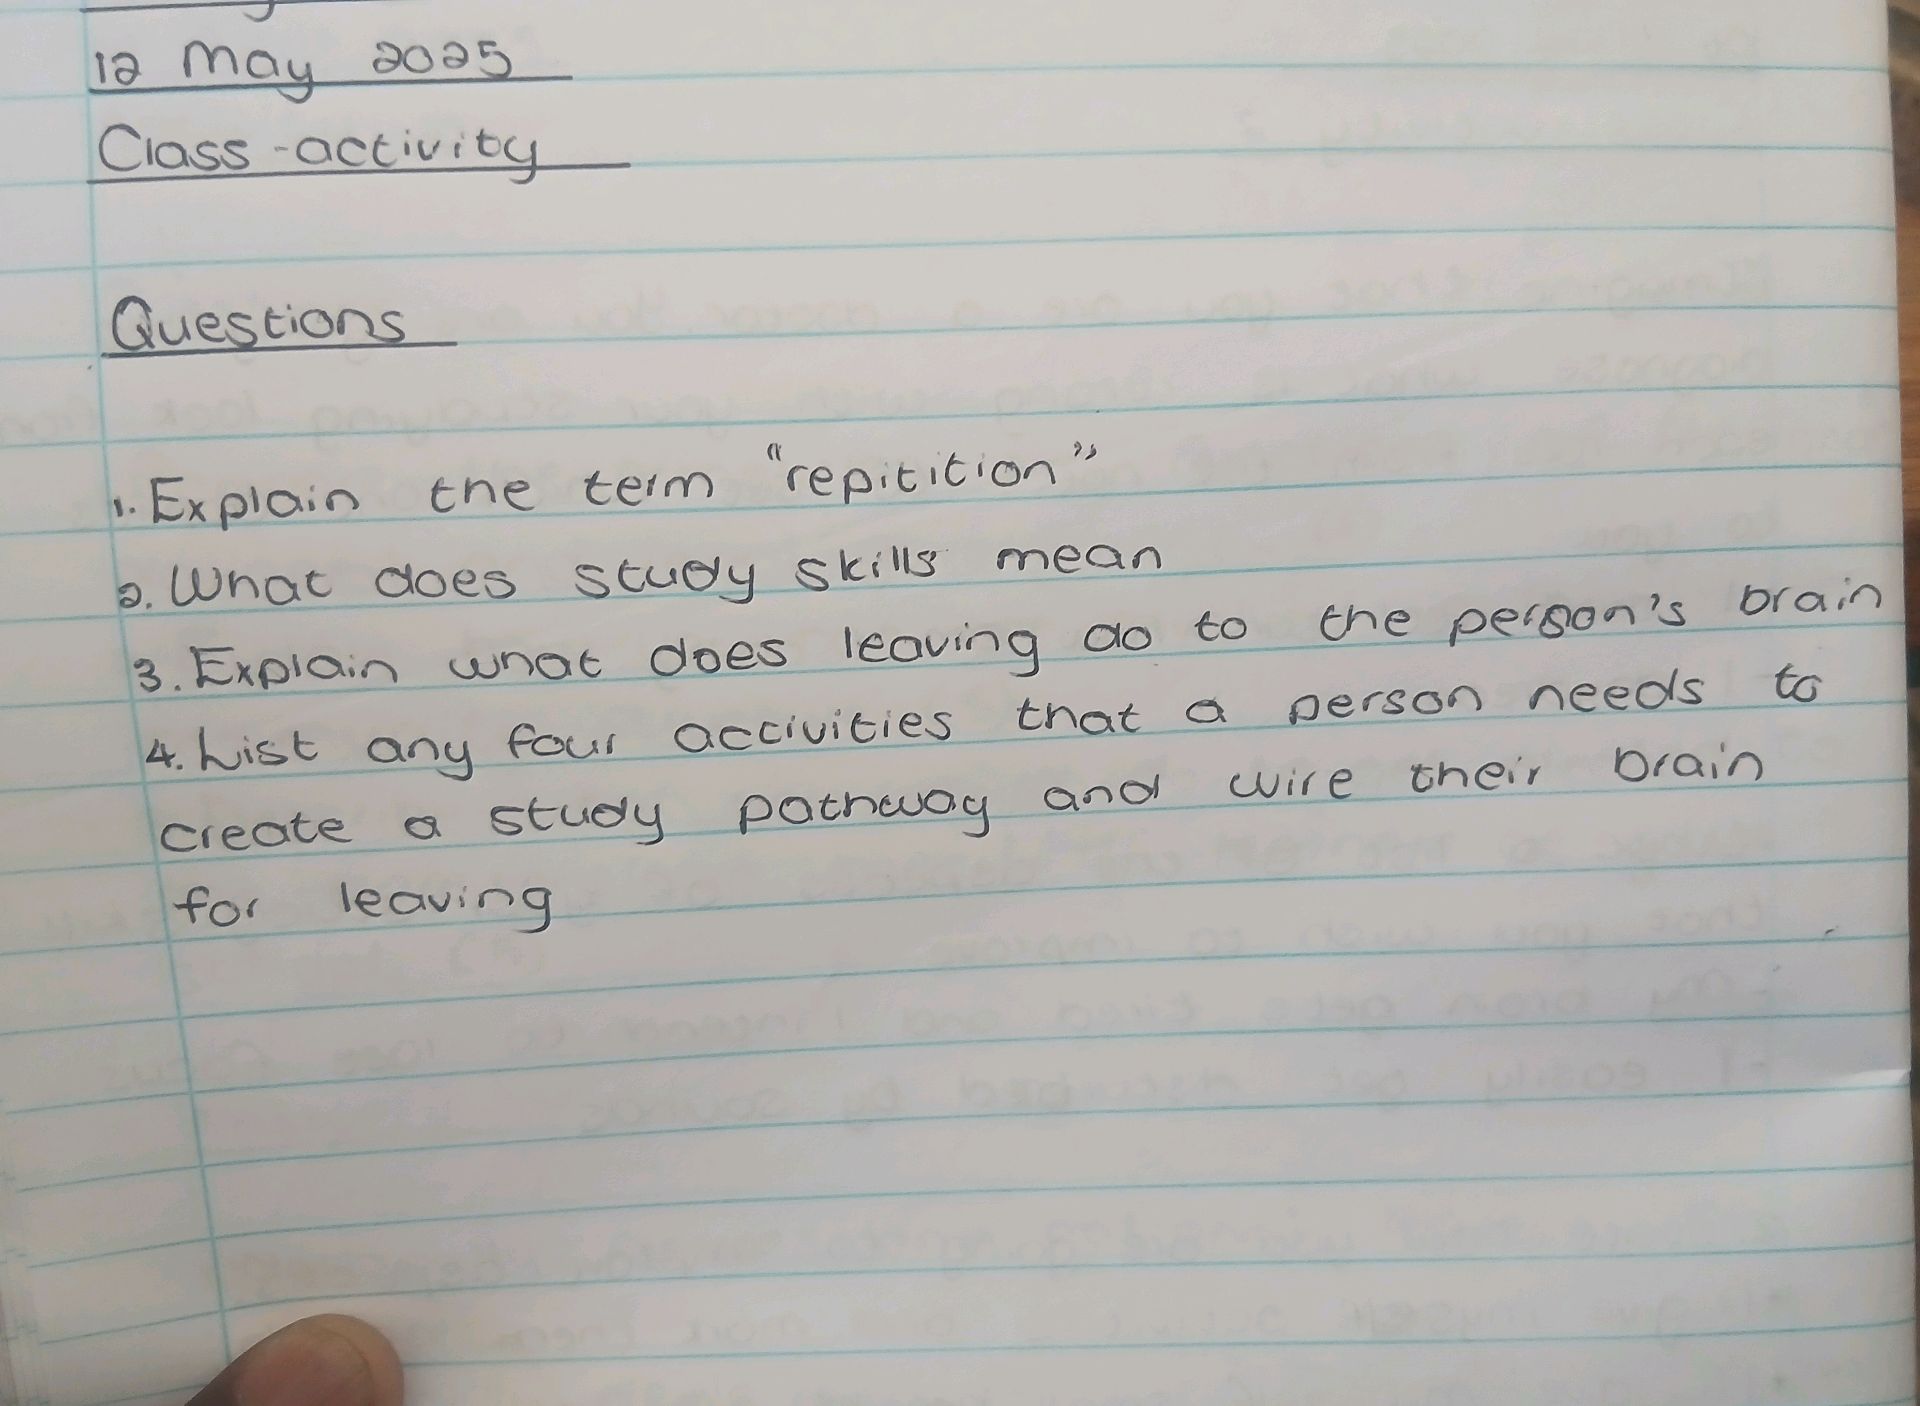 12 May 2025
Class-activity
Questions
1. Explain the term "repitition"
2. What does study skills mean
3. Explain what does leaving do to the person's brain
4. List any four activities that a person needs to
create a study pathway and wire their brain
for leaving